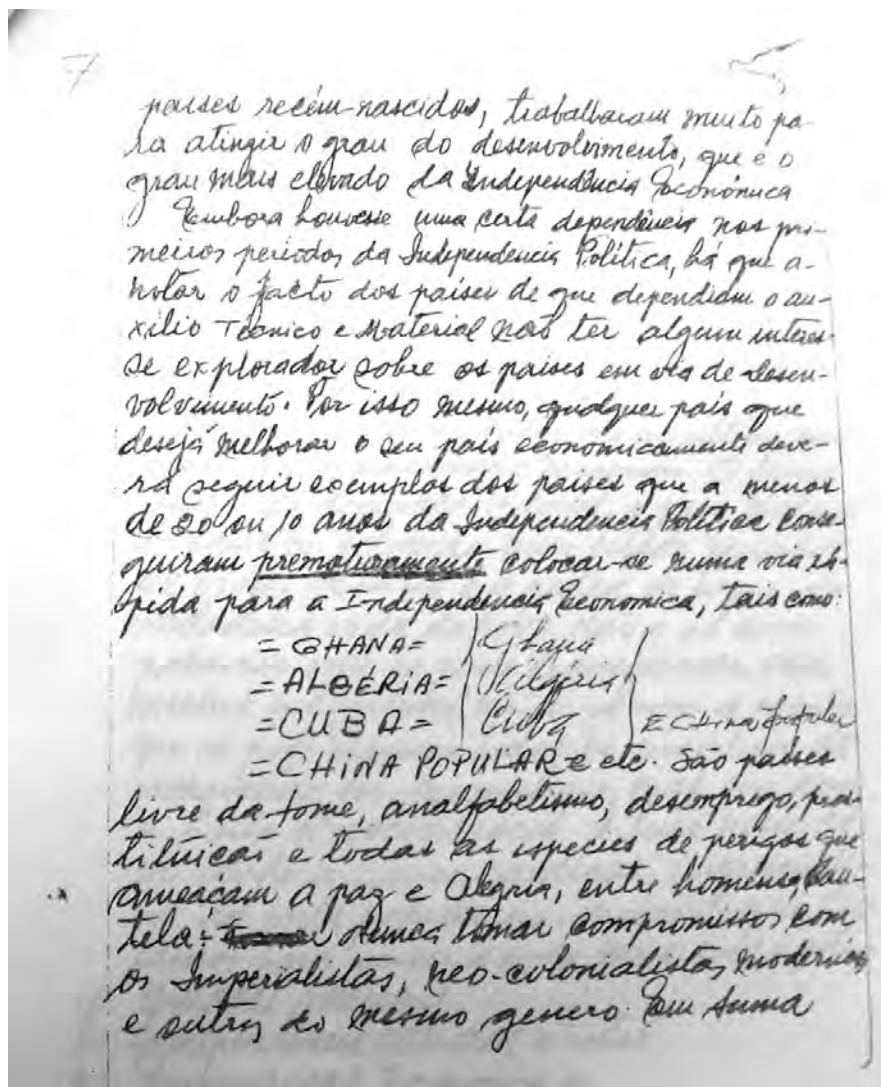 7
países recém-nascidos, trabalharam muito pa-
ra atingir o grau do desenvolvimento, que é o
grau mais elevado da Independência Económica
Embora houvesse uma certa dependência nos pri-
meiros períodos da Independencia Política, há que a-
notar o facto dos países de que dependiam o au-
xílio Técnico e Material não ter algum interes-
se explorador sobre os países em via de desen-
volvimento. Por isso mesmo, qualquer país que
deseja melhorar o seu país economicamente deve-
rá seguir exemplos dos países que a menos
de 20 ou 10 anos da Independencia Política conse-
guiram prematuramente colocar-se numa via rá-
pida para a Independencia Economica, tais como:
= GHANA= Ghana
=ALGÉRIA= Algéria
=CUBA= Cuba E China Popular
=CHINA POPULAR= etc. São países
livre da fome, analfabetismo, desemprego, pros-
tituição e todas as especies de perigos que
ameaçam a paz e Alegria, entre homens, Cau-
tela: Nunca tomar compromissos com
os Imperialistas, neo-colonialistas modernos
e outros do mesmo genero. Em suma